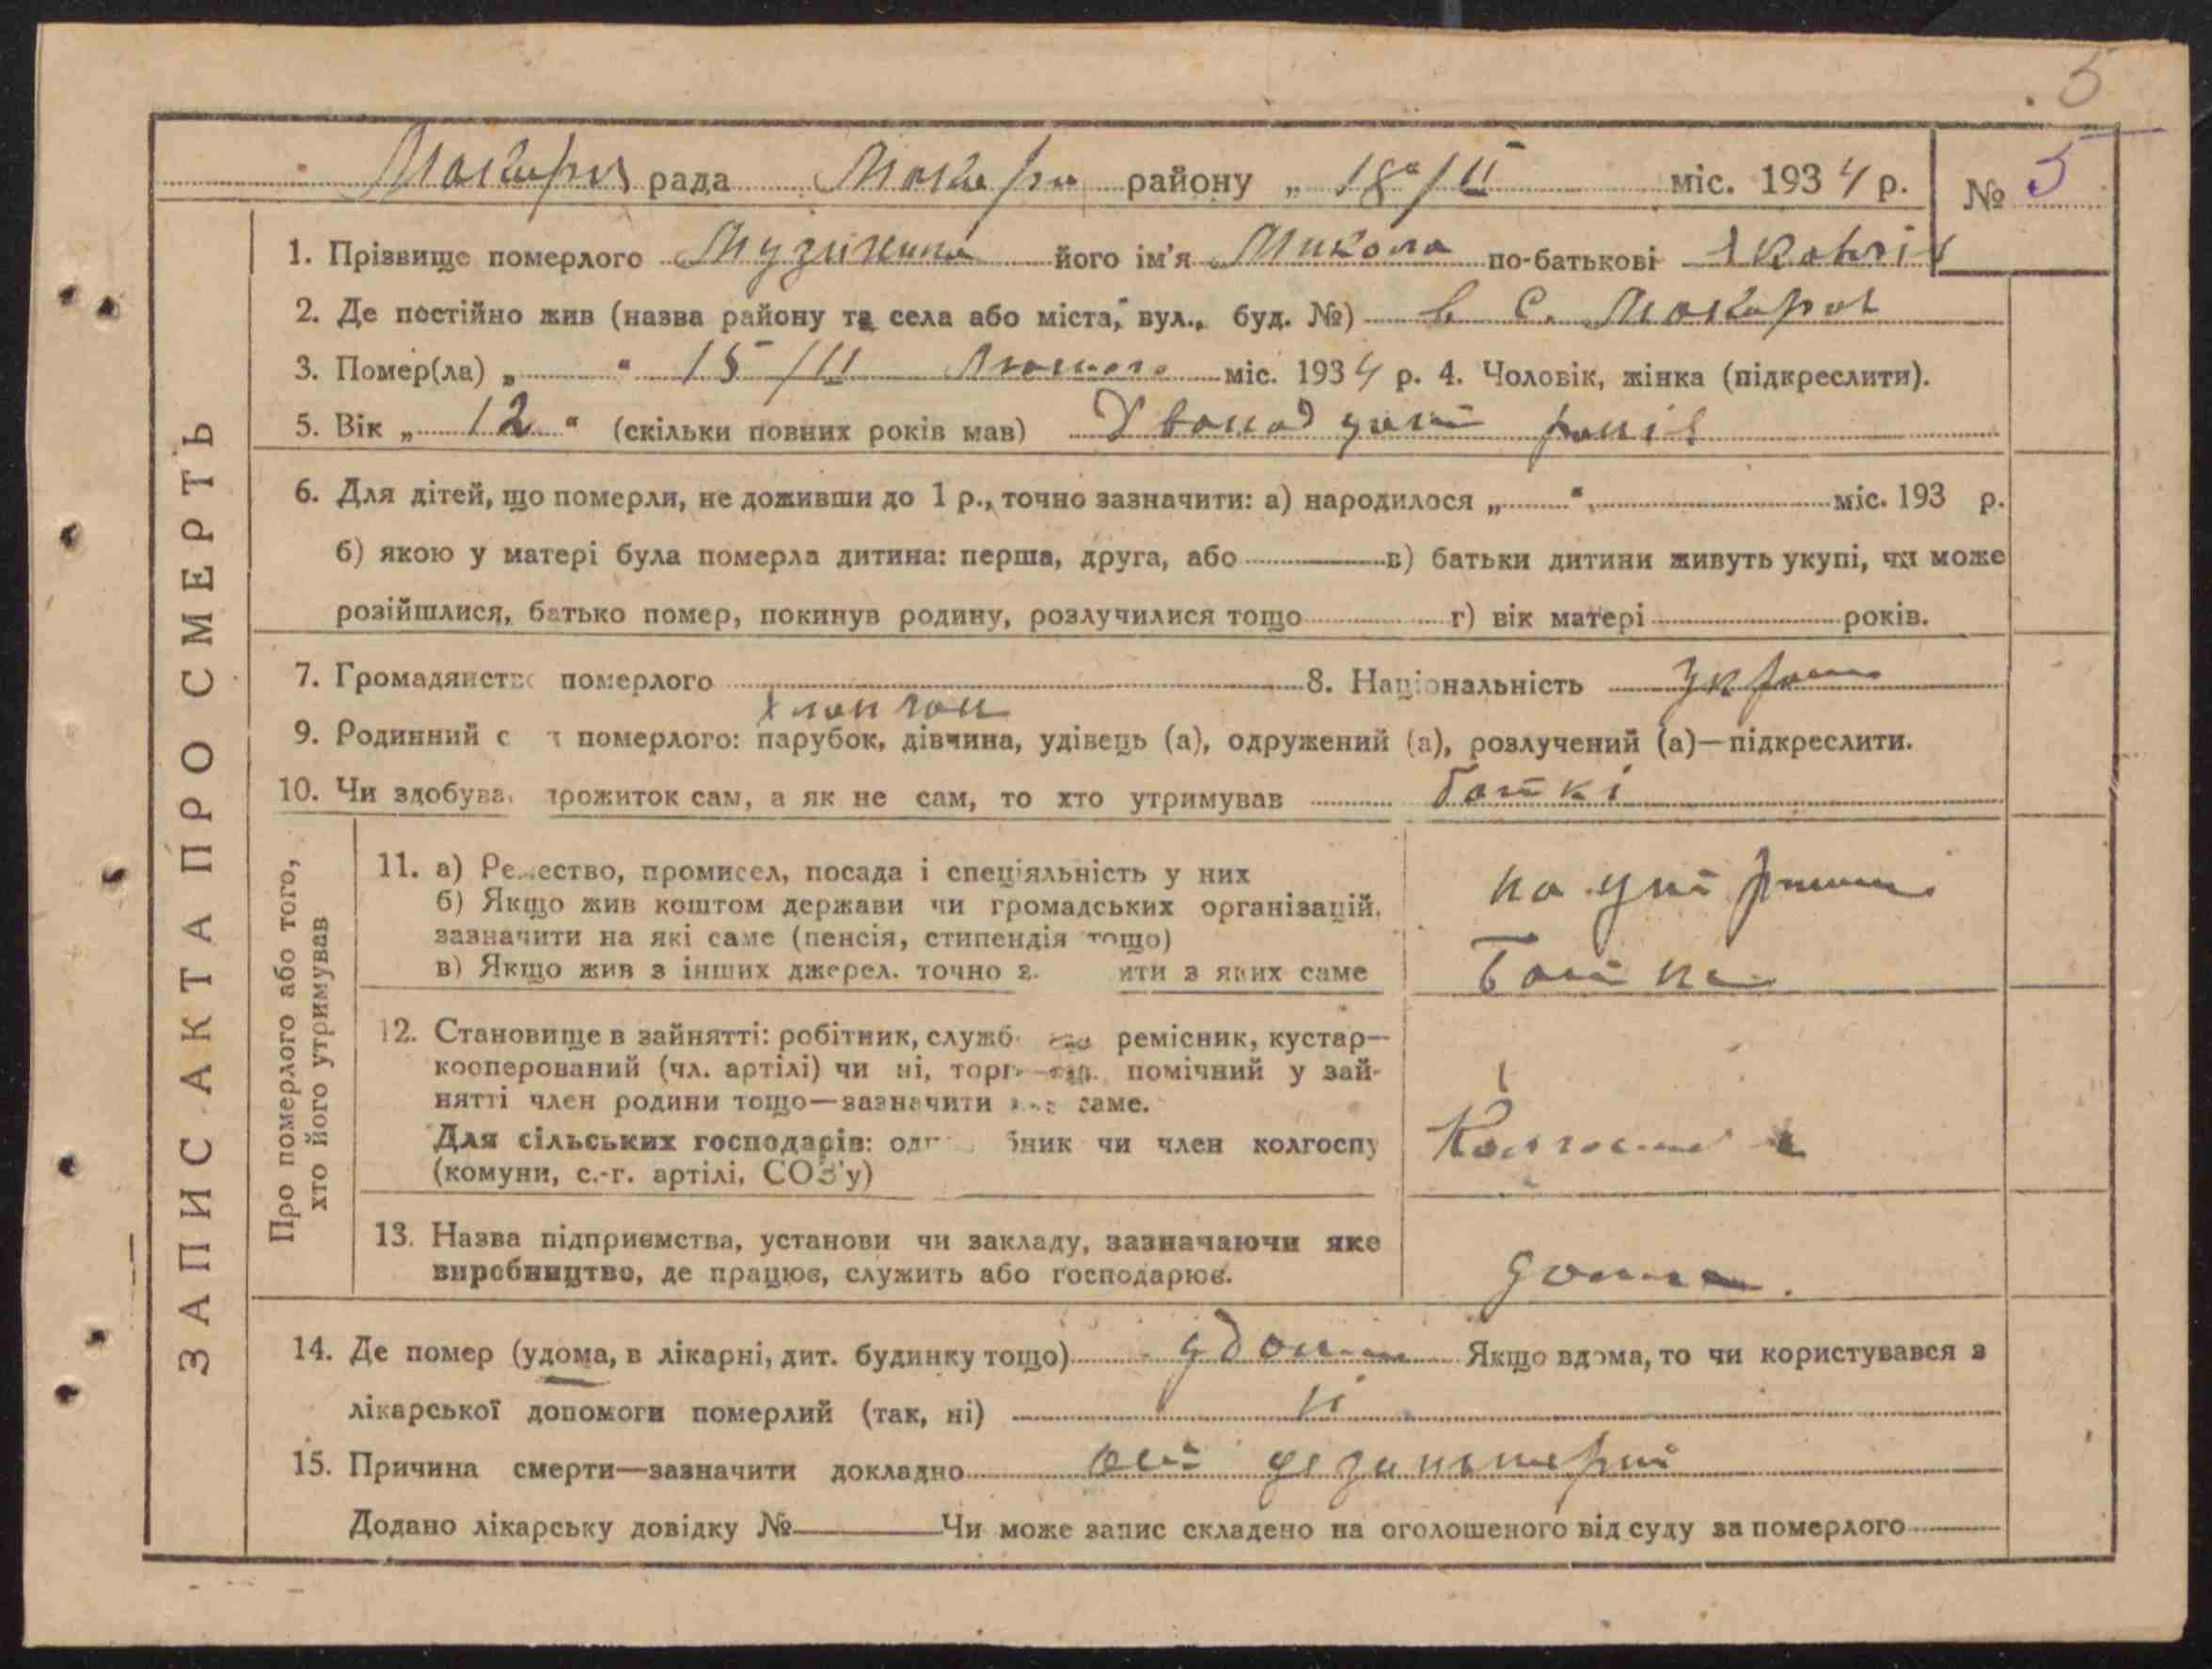 5
Макарів рада Макарів району „ 18 / II міс. 1934 р. № 5
ЗАПИС АКТА ПРО СМЕРТЬ
1. Прізвище померлого його ім'я Микола по-батькові Яковліv
2. Де постійно жив (назва району та села або міста, вул., буд. №) в с. Макарів
3. Помер(ла) „ “ 15 / II Лютого міс. 1934 р. 4. Чоловік, жінка (підкреслити).
5. Вік „ 12 “ (скільки повних років мав) Дванадцять років
6. Для дітей, що померли, не доживши до 1 р., точно зазначити: а) народилося „ “ міс. 193 р.
б) якою у матері була померла дитина: перша, друга, або в) батьки дитини живуть укупі, чи може
розійшлися, батько помер, покинув родину, розлучилися тощо г) вік матері років.
7. Громадянство померлого 8. Національність Україн
хлопчик
9. Родинний с т померлого: парубок, дівчина, удівець (а), одружений (а), розлучений (а)—підкреслити.
10. Чи здобува прожиток сам, а як не сам, то хто утримував батькі
Про померлого або того,
хто його утримував
11. а) Ремество, промисел, посада і спеціяльність у них
б) Якщо жив коштом держави чи громадських організацій,
зазначити на які саме (пенсія, стипендія тощо)
в) Якщо жив з інших джерел. точно з ити з яких саме
на утриман
Батька
12. Становище в зайнятті: робітник, служб ремісник, кустар—
кооперований (чл. артілі) чи ні, торг помічний у зай-
нятті член родини тощо—зазначити саме.
Для сільських господарів: од бник чи член колгоспу
(комуни, с.-г. артілі, СОЗ'у)
Колгоспник
13. Назва підприємства, установи чи закладу, зазначаючи яке
виробництво, де працює, служить або господарює.
дома.
14. Де помер (удома, в лікарні, дит. будинку тощо) удома Якщо вдома, то чи користувався з
лікарської допомоги померлий (так, ні) ні
15. Причина смерти—зазначити докладно від дезинтерії
Додано лікарську довідку № Чи може запис складено на оголошеного від суду за померлого